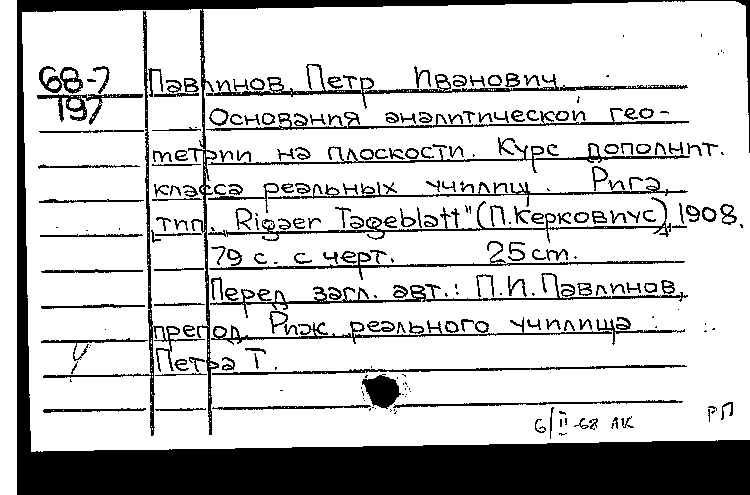 68-7
197
Павлинов, Петр Иванович.
Основания аналитической гео-
метрии на плоскости. Курс дополнит.
класса реальных училищ. Рига,
тип. „Rigaer Tageblatt" (П.Керковиус), 1908.
79 с. с черт. 25 cm.
Перед загл. авт.: П.И.Павлинов,
препод. Риж. реального училища
Петра Ι.
6/II-68 АК РП